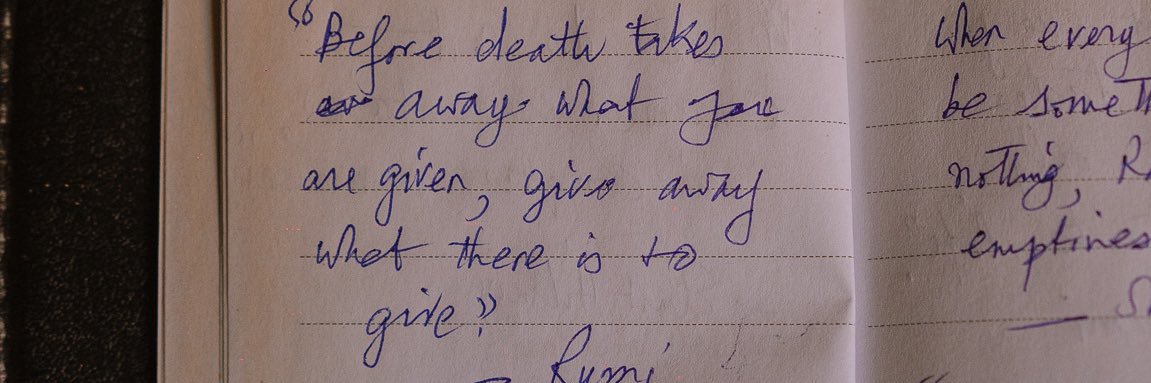 "Before death takes
away what you
are given, give away
what there is to
give"
- Rumi
When every
be someth
nothing, R
emptines